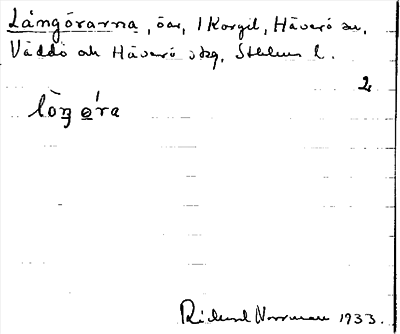 Långörarna, öar, 1 Korgil, Häverö sn,
Väddö och Häverö skg, Sthlms l.
2
lòŋ ǿra
Rickard Norrman 1933.